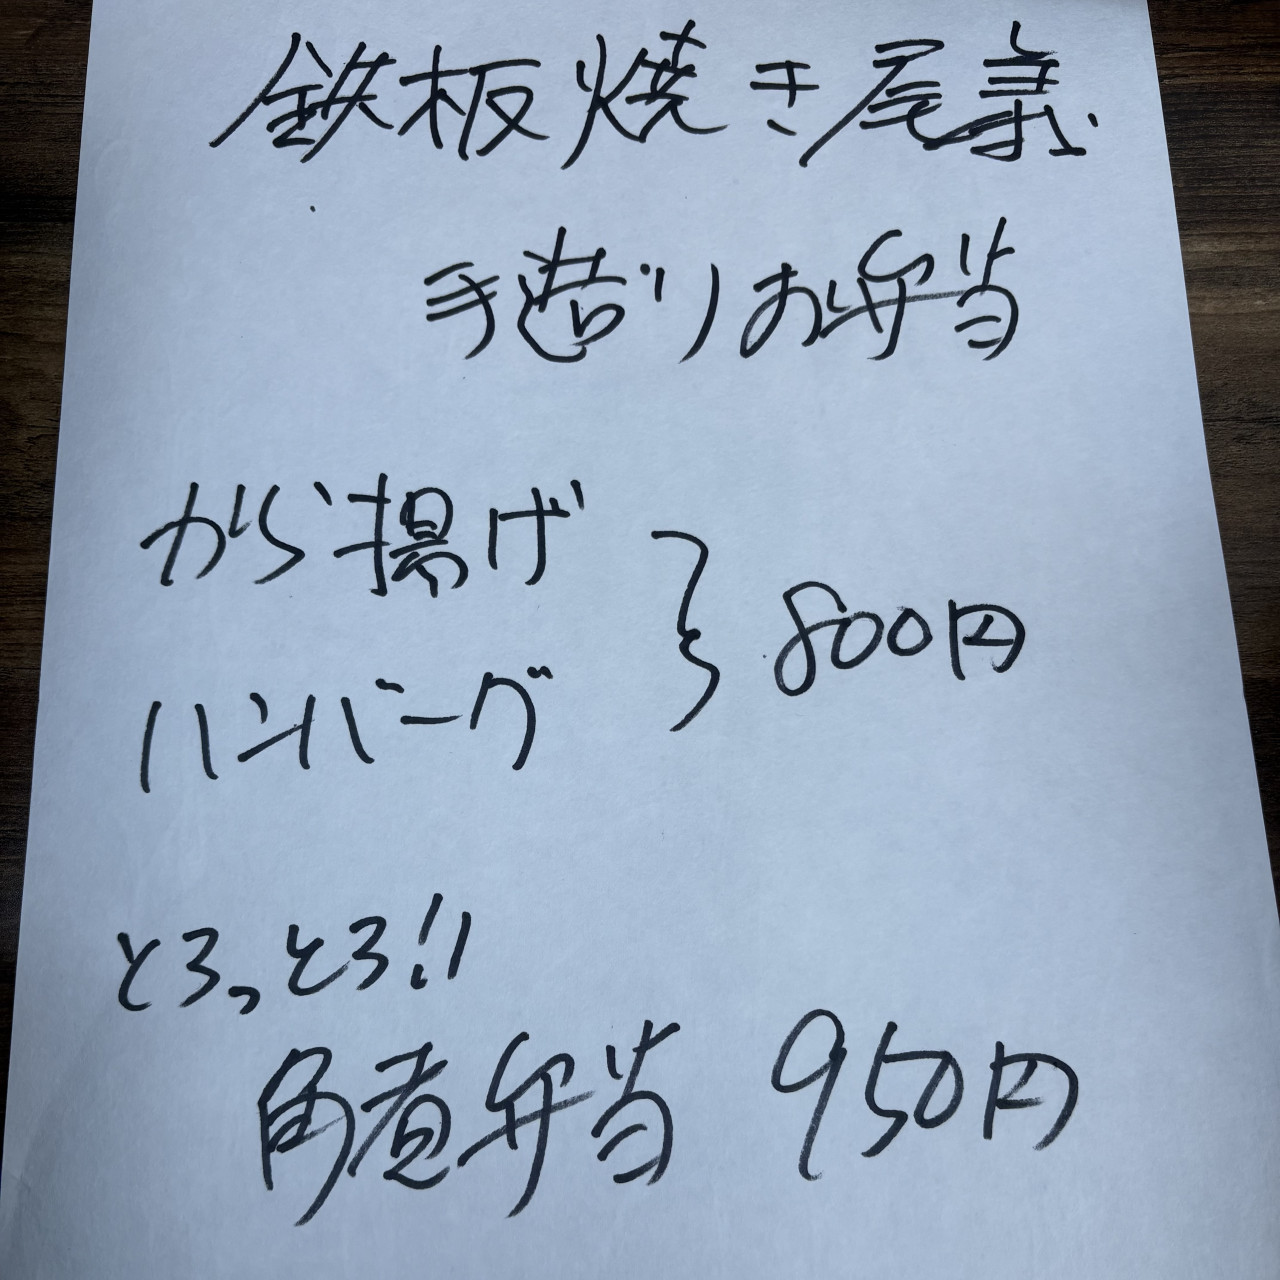 鉄板焼き尾義
手造りお弁当
から揚げ
ハンバーグ
800円
とろっとろ!!
角煮弁当 950円